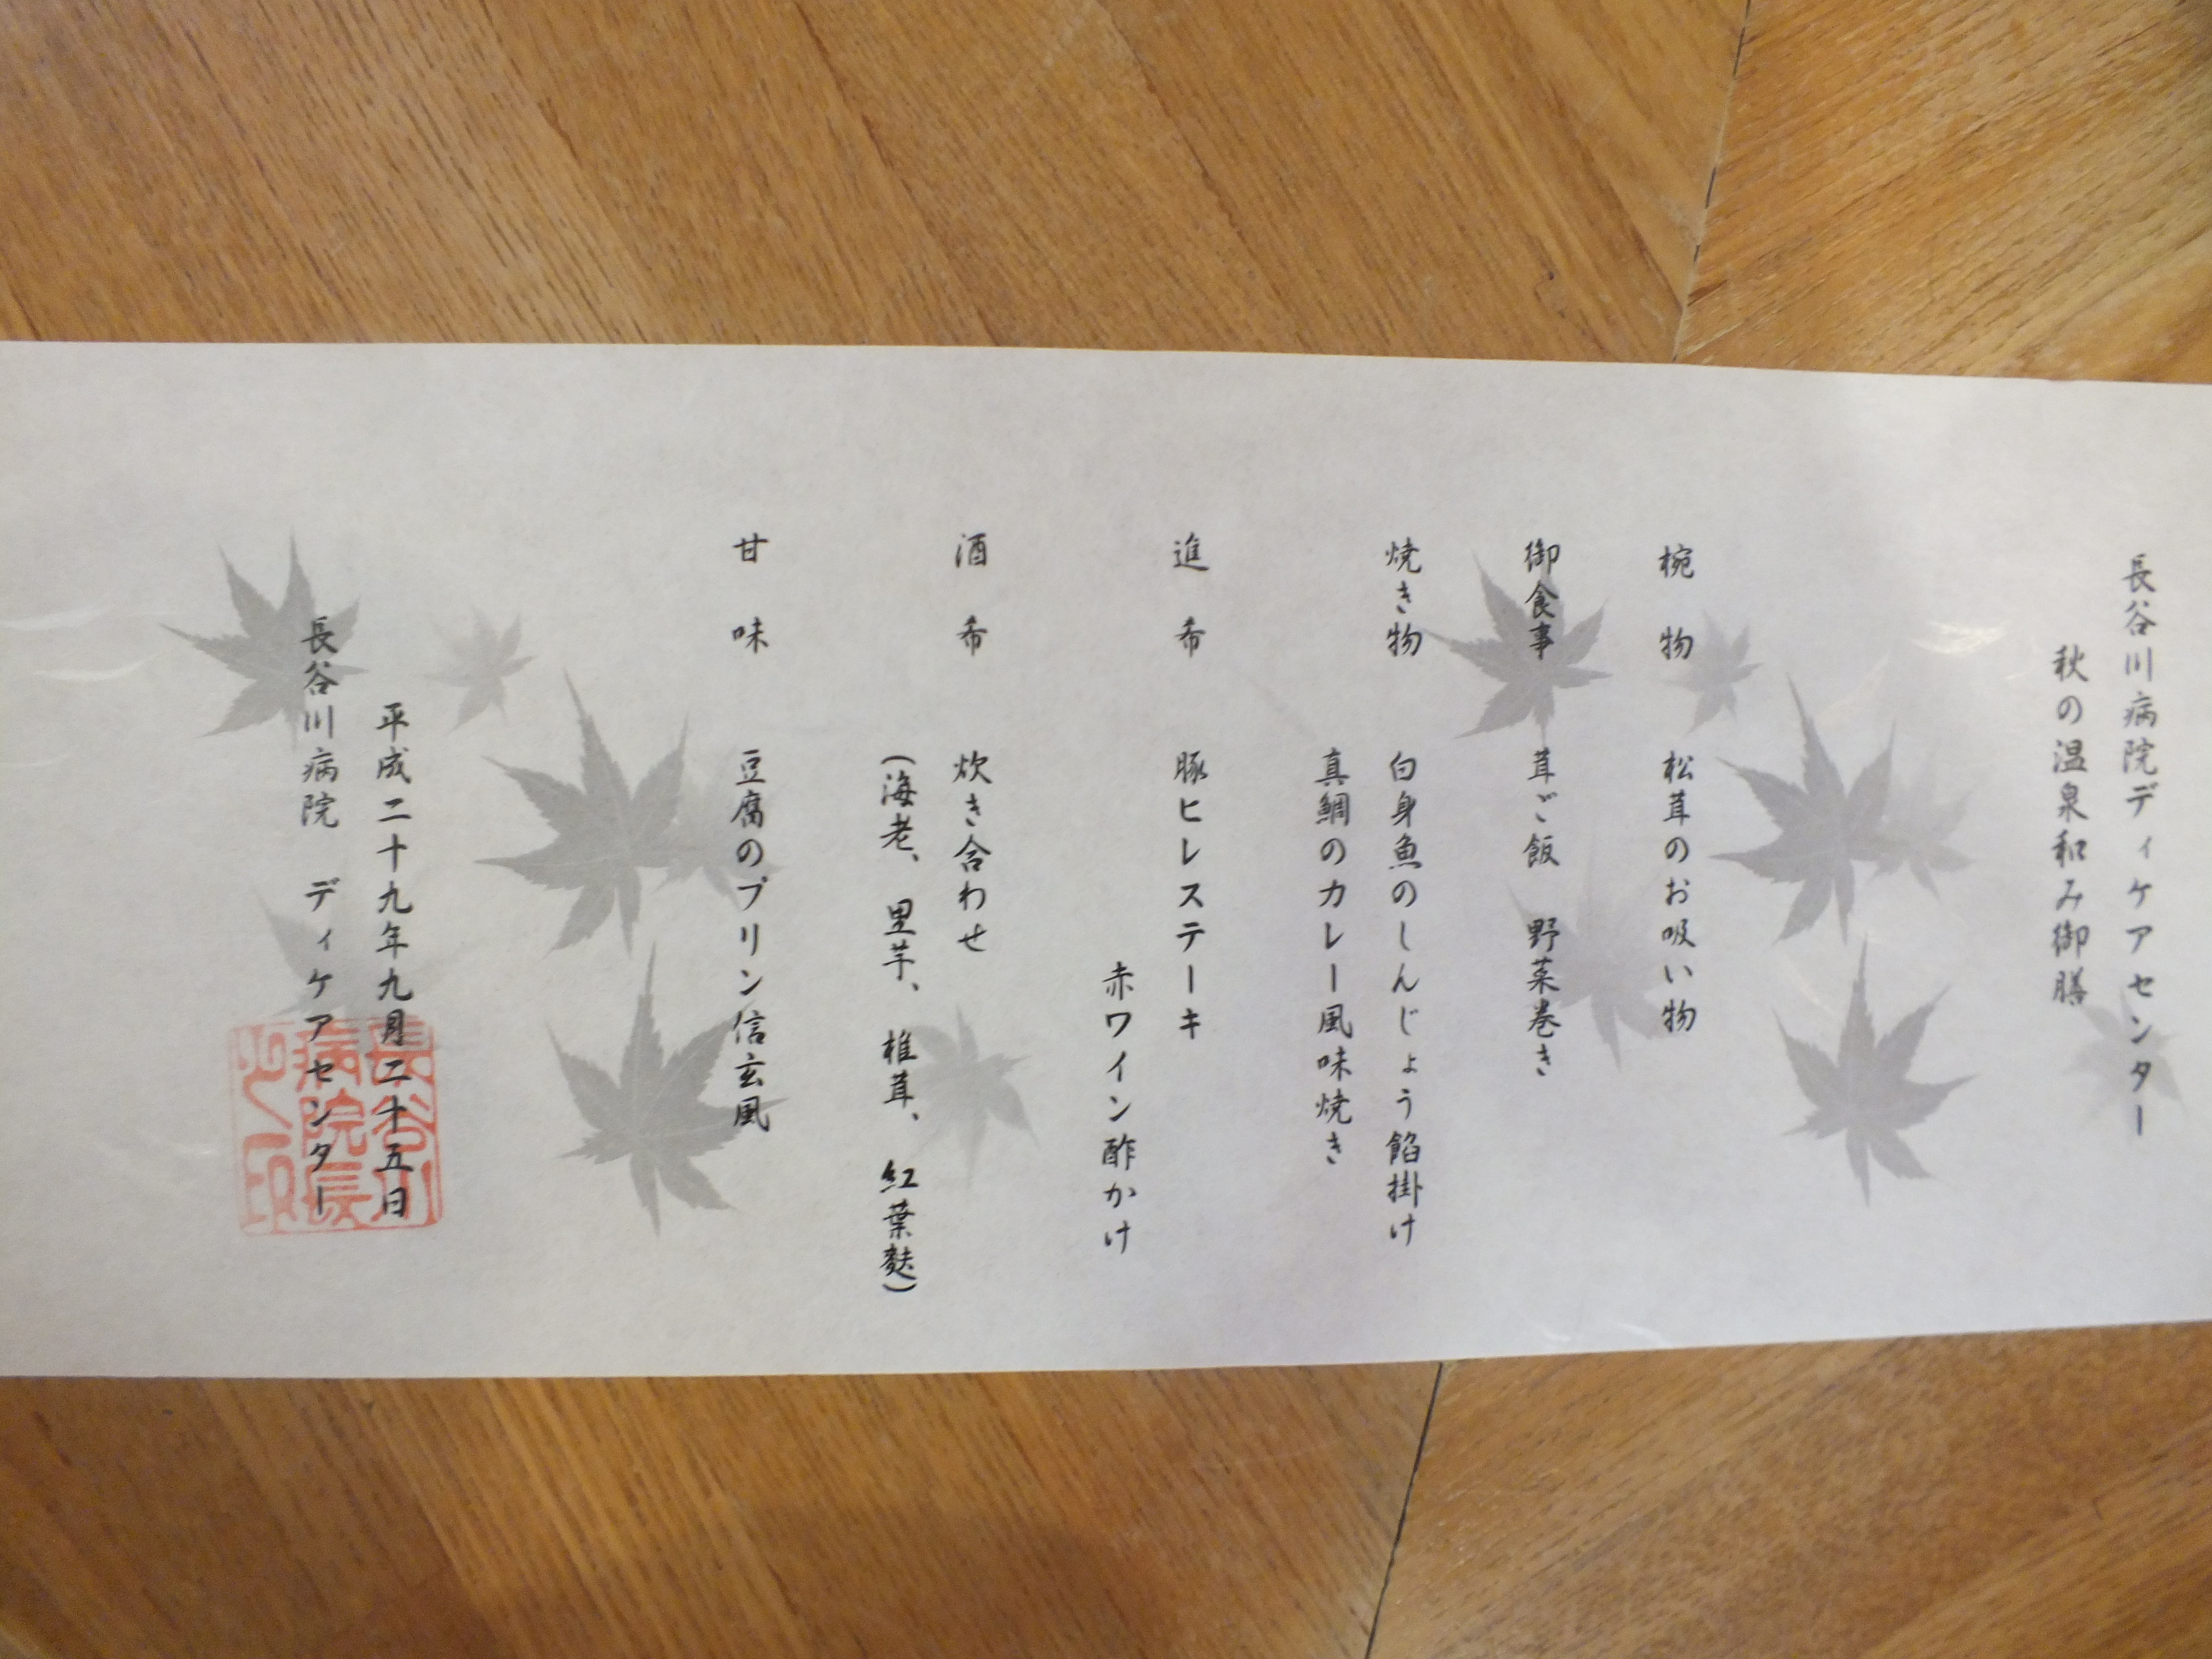 長谷川病院ディケアセンター
秋の温泉和み御膳
椀物　松茸のお吸い物
御食事　茸ご飯　野菜巻き
焼き物　白身魚のしんじょう餡掛け
真鯛のカレー風味焼き
進希　豚ヒレステーキ
赤ワイン酢かけ
酒希　炊き合わせ
(海老、里芋、椎茸、紅葉麩)
甘味　豆腐のプリン信玄風
平成二十九年九月二十五日
長谷川病院　ディケアセンター
長谷川
病院長
之印